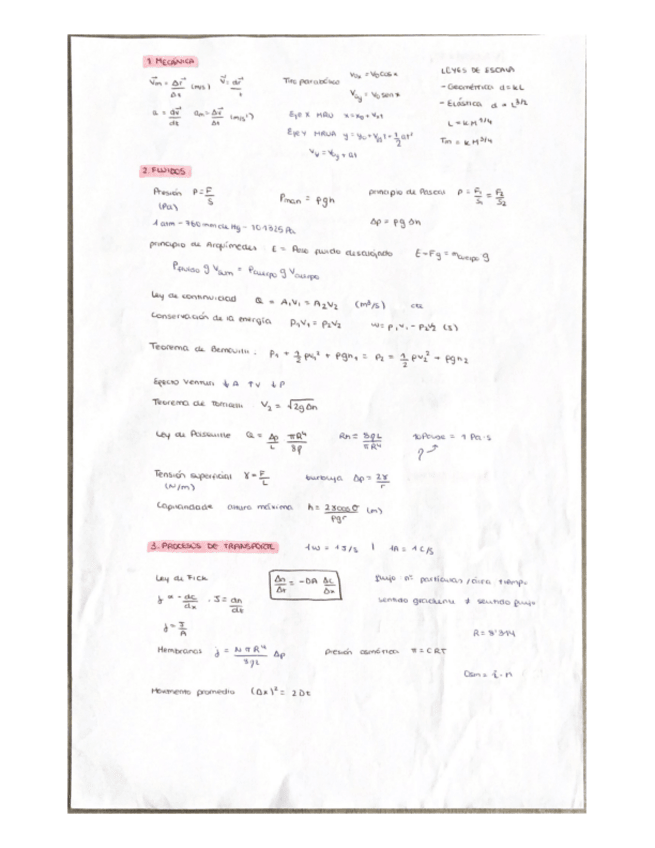 1. MECÁNICA
v⃗m = Δr⃗/Δt (m/s) v⃗ = dr⃗/t
a = dv⃗/dt am = Δv⃗/Δt (m/s²)
Tiro parabólico v0x = v0 cos α
v0y = v0 sen α
Eje X MRU x = x0 + vxt
Eje Y MRUA y = y0 + v0t + 1/2 at²
vy = v0y + at
LEYES DE ESCALA
- Geométrica d = kL
- Elástica d = L^3/2
L = kM^1/4
Tm = kM^3/4
2. FLUIDOS
Presión P = F/S (Pa) Pman = ρgh principio de Pascal P = F1/S1 = F2/S2
Δp = ρg Δh
1 atm - 760 mm de Hg - 101325 Pa
principio de Arquímedes E = Peso fluido desalojado E - Fg = mcuerpo g
ρfluido g Vsum = ρcuerpo g Vcuerpo
Ley de continuidad Q = A1V1 = A2V2 (m³/s)
Conservación de la energía P1V1 = P2V2 W = P1V1 - P2V2 (J)
Teorema de Bernoulli: P1 + 1/2 ρv1² + ρgh1 = P2 = 1/2 ρv2² + ρgh2
Efecto Venturi ↓A ↑V ↓P
Teorema de Torricelli V2 = √2gΔh
Ley de Poiseuille Q = Δp/L πR⁴/8η Rh = 8ηL/πR⁴ 10 Poise = 1 Pa·s
Tensión superficial γ = F/L (N/m) burbuja Δp = 2γ/r
Capilaridad altura máxima h = 2γcosθ/ρgr (m)
3. PROCESOS DE TRANSPORTE 1W = 1J/s | 1A = 1C/s
Ley de Fick Δn/Δt = -DA Δc/Δx flujo nº partículas / área tiempo
j = -dc/dx . J = dn/dt sentido gradiente ≠ sentido flujo
j = J/A
R = 8'314
Membranas j = NπR⁴/8ηL Δp presión osmótica π = CRT
Osm = i·n
Movimiento promedio (Δx)² = 2Dt